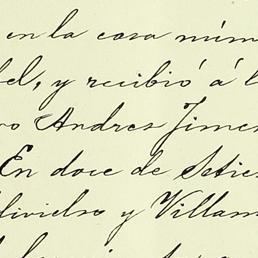 en la casa núm
bel, y recibió á l
vo Andres Jimen
En doce de Setie
divielso y Villam